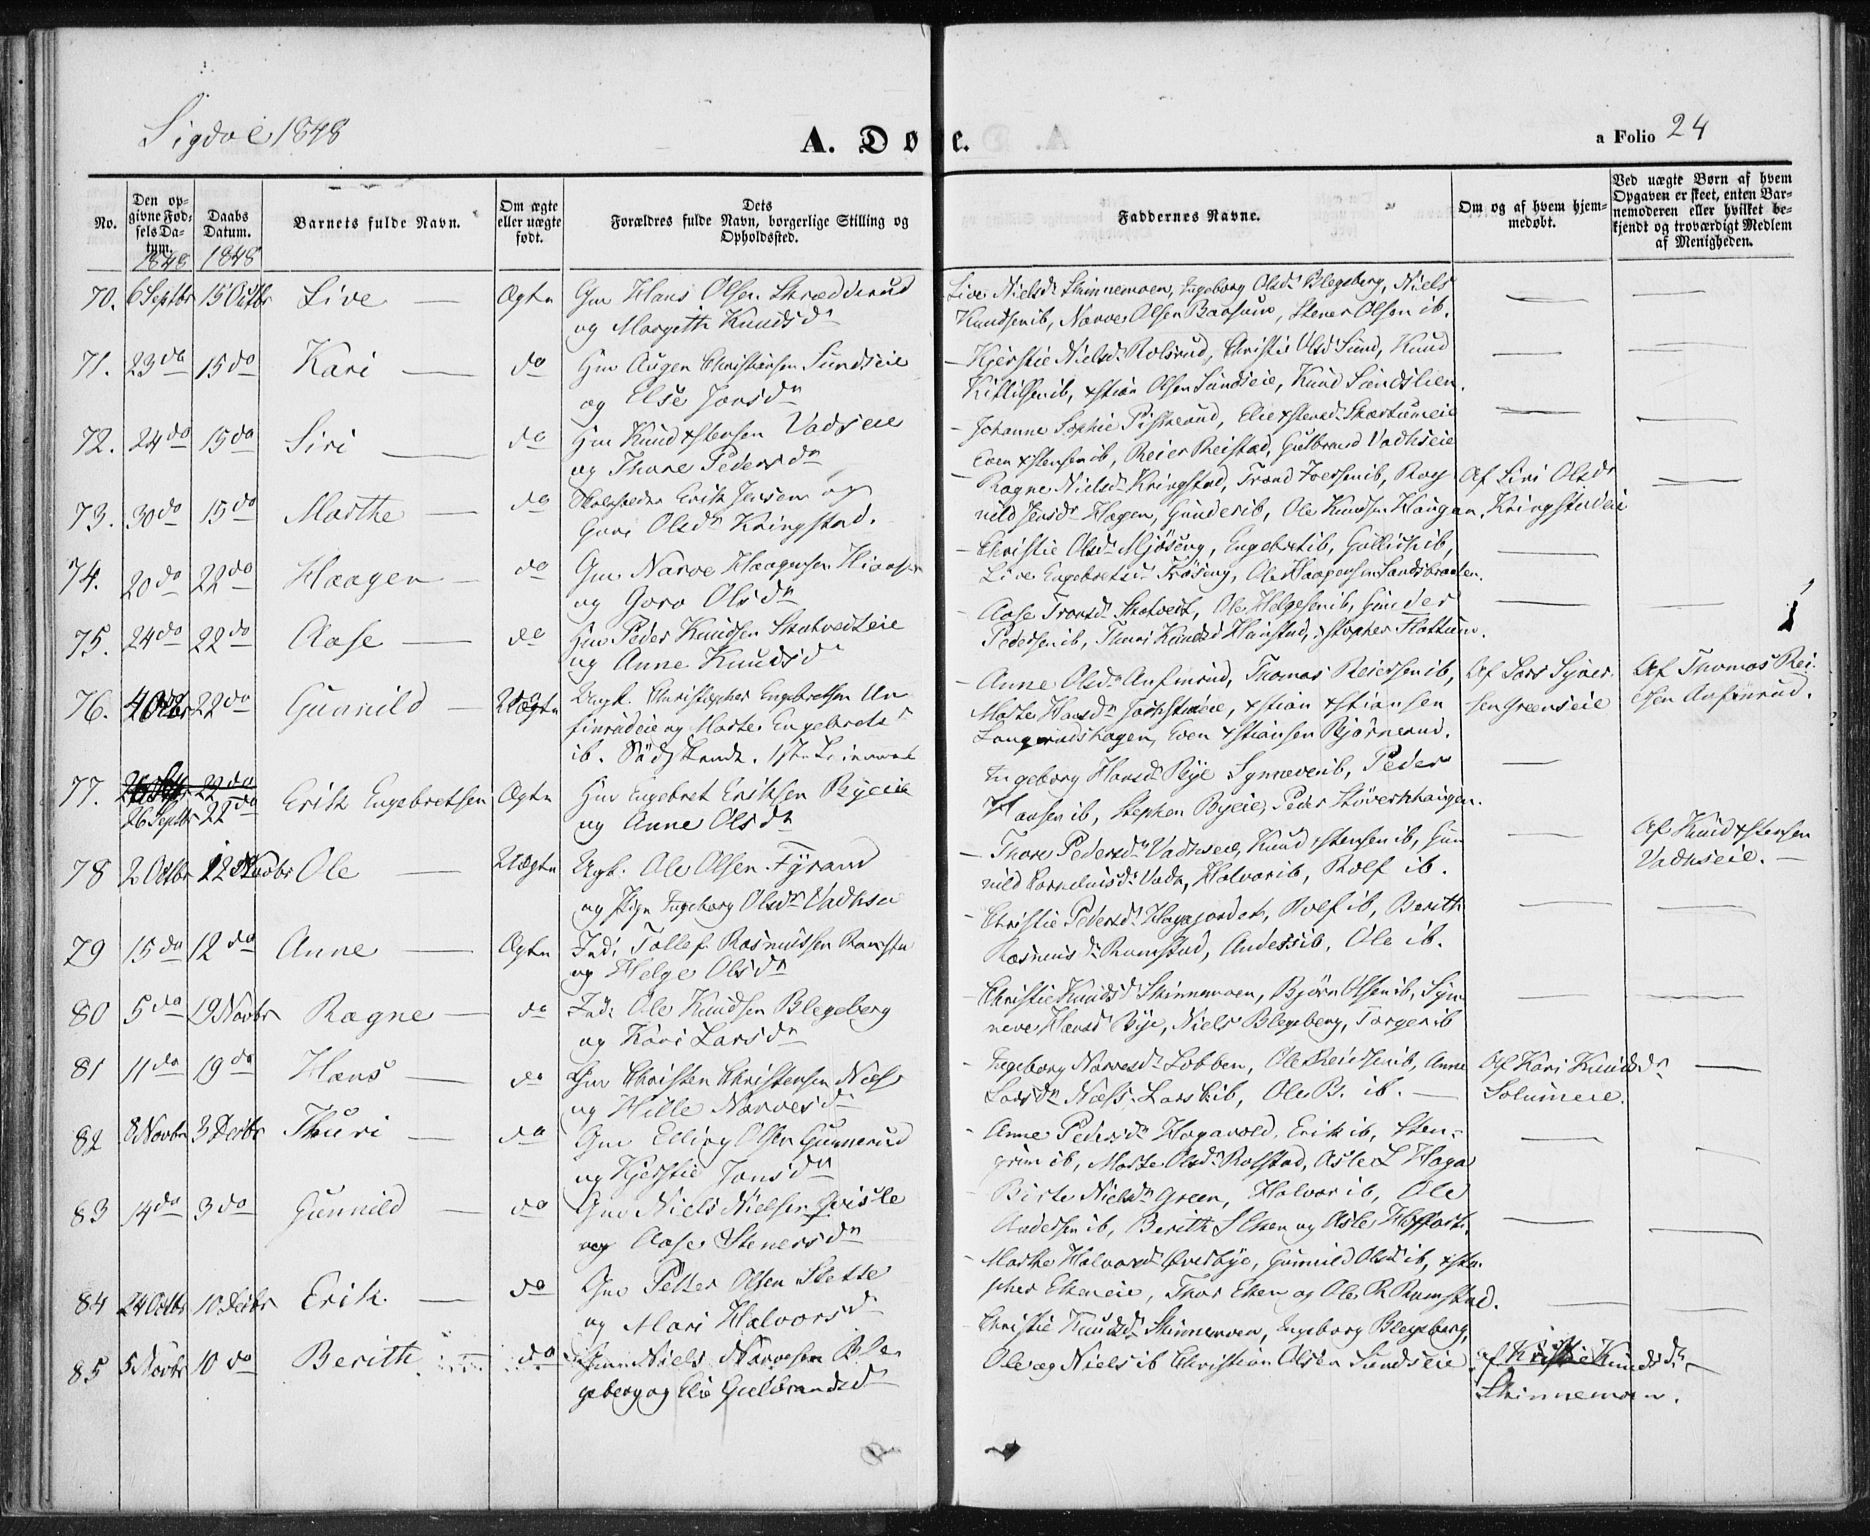 Sigdal 1848
A. Døbte.
a Folio 24
No.
Den opgivne Fødsels Datum. 1848
Daabs Datum. 1848
Barnets fulde Navn.
Om ægte eller uægte født.
Dets Forældres fulde Navn, borgerlige Stilling og Opholdssted.
Faddernes Navne.
Om og af hvem hjemmedøbt.
Ved uægte Børn af hvem Opgaven er skeet, enten Barnemoderen eller hvilket bekjendt og troværdigt Medlem af Menigheden.
70. 6 Septbr 15 Octbr Live Ægte Gm Hans Olsen Skrædderud
og Margith Knudsdr
Live Nielsdr Skinnemoen, Ingeborg Olsdr Blegeberg, Niels
Knudsen ib, Narve Olsen Baasum, Stener Olsen ib.
71. 23 do 15 do Kari do Hm Augen Christiansen Sundseie
og Else Jonsdr
Kjerstie Nielsdr Rolsrud, Christie Olsdr Sund, Knud
Kittilsen ib, xstian Olsen Sundseie, Knud Sandslien.
72. 24 do 15 do Siri do Hm Knud xstensen Vadseie
og Thore Pedersdr
Johanne Sophie Pistrerud, Elie xstensdr Skartumeie
Even xstensen ib, Reier Reistad, Gulbrand Vadhseie
73. 30 do 15 do Marthe do Skoleholder Erik Jensen og
Guri Olsdr Kringstad.
Ragne Nielsdr Kringstad, Trond Iversen ib, Rag
nild Jensdr Hagen, Gunder ib, Ole Knudsen Haugan.
Af Siri Olsdr
Kringstadeie
74. 20 do 22 do Haagen do Gm Narve Haagensen
og Goro Olsdr
Christie Olsdr Mjøseng, Engebret ib, Gullich ib,
Live Engebretsdr Trøseng, Ole Haagensen Sandsbraaten.
75. 24 do 22 do Aase do Hm Peder Knudsen Skatvedteie
og Anne Knudsdr
Aase Tronsdr Skatvedt, Ole Helgesen ib, Gunder
Pedersen ib, Thuri Knudsdr Hanstad, xstopher Flattum.
76. 22 do Gunnild Uægte Ungk. Christopher Engebretsen An
finrudeie og Marte Engebretsdr
ib.
Anne Olsdr Anfinrud, Thomas Reiersen ib,
Marte Hansdr, xstian xstiansen
Langerudshagen, Even xstiansen Bjørnerud.
Af Lars Syver
sen Greenseie
Af Thomas Rei
ersen Anfinrud.
77. 26 Septbr 22 do Erik Engebretsen Ægte Hm Engebret Eriksen Byeie
og Anne Olsdr
Ingeborg Hansdr Bye Synneve ib, Peder
Hansen ib, Stephen Byeie, Peder Støvernhaugen.
78 2 Octbr 12 Novbr Ole Uægte Ungk. Ole Olsen Fyrand
og Pige Ingeborg Olsdr Vadhseie
Thore Pedersdr Vadhseie, Knud xstensen ib, Gun
nild Corneliusdr Vadh, Halvor ib, Rolf ib.
Af Knud xstensen
Vadhseie.
79 15 do 12 do Anne Ægte Inds Tollef Rasmussen Ramstad
og Helge Olsdr
Christie Pedersdr Hagajordet, Rolf ib, Berith
Rasmusdr Ramstad, Anders ib, Ole ib.
80 5 do 19 Novbr Ragne do Inds Ole Knudsen Blegeberg
og Kari Larsdr
Christie Knudsdr Skinnemoen, Bjørn Olsen ib, Syn
neve Hansdr Bye, Niels Blegeberg, Torger ib
81 11 do 19 do Hans do Gm Christen Christensen Næss
og Hille Narvesdr
Ingeborg Narvesdr Lobben, Ole Reiersen ib, Anne
Larsdr Næss, Lars ib, Ole B. ib.
Af Kari Knudsdr
Solumeie.
82 8 Novbr 3 Decbr Thuri do Gm Elling Olsen Gunnerud
og Kjerstie Jonsdr
Anne Pedersdr Hagavold, Erik ib, Sten
grim ib, Marte Olsdr Rolstad, Asle L Haga
83 14 do 3 do Gunnild do Gm Niels Nielsen Qvisle
og Aase Stenersdr
Birte Nielsdr Green, Halvor ib, Ole
Andersen ib, Berith S Eken og Asle Hoffart.
84 24 Octbr 10 Decbr Erik do Gm Petter Olsen Slette
og Mari Halvorsdr
Marthe Halvorsdr Øvrebye, Gunnild Olsdr ib, xsto
pher Ekeneie, Thor Eken og Ole R Ramstad.
85 5 Novbr 10 do Berith do Gm Niels Narvesen Ble
geberg og Elie Gulbrandsdr
Christie Knudsdr Skinnemoen, Ingeborg Blegeberg,
Ole og Niels ib Christian Olsen Sundseie
af Kristie Knudsdr
Skinnemoen.